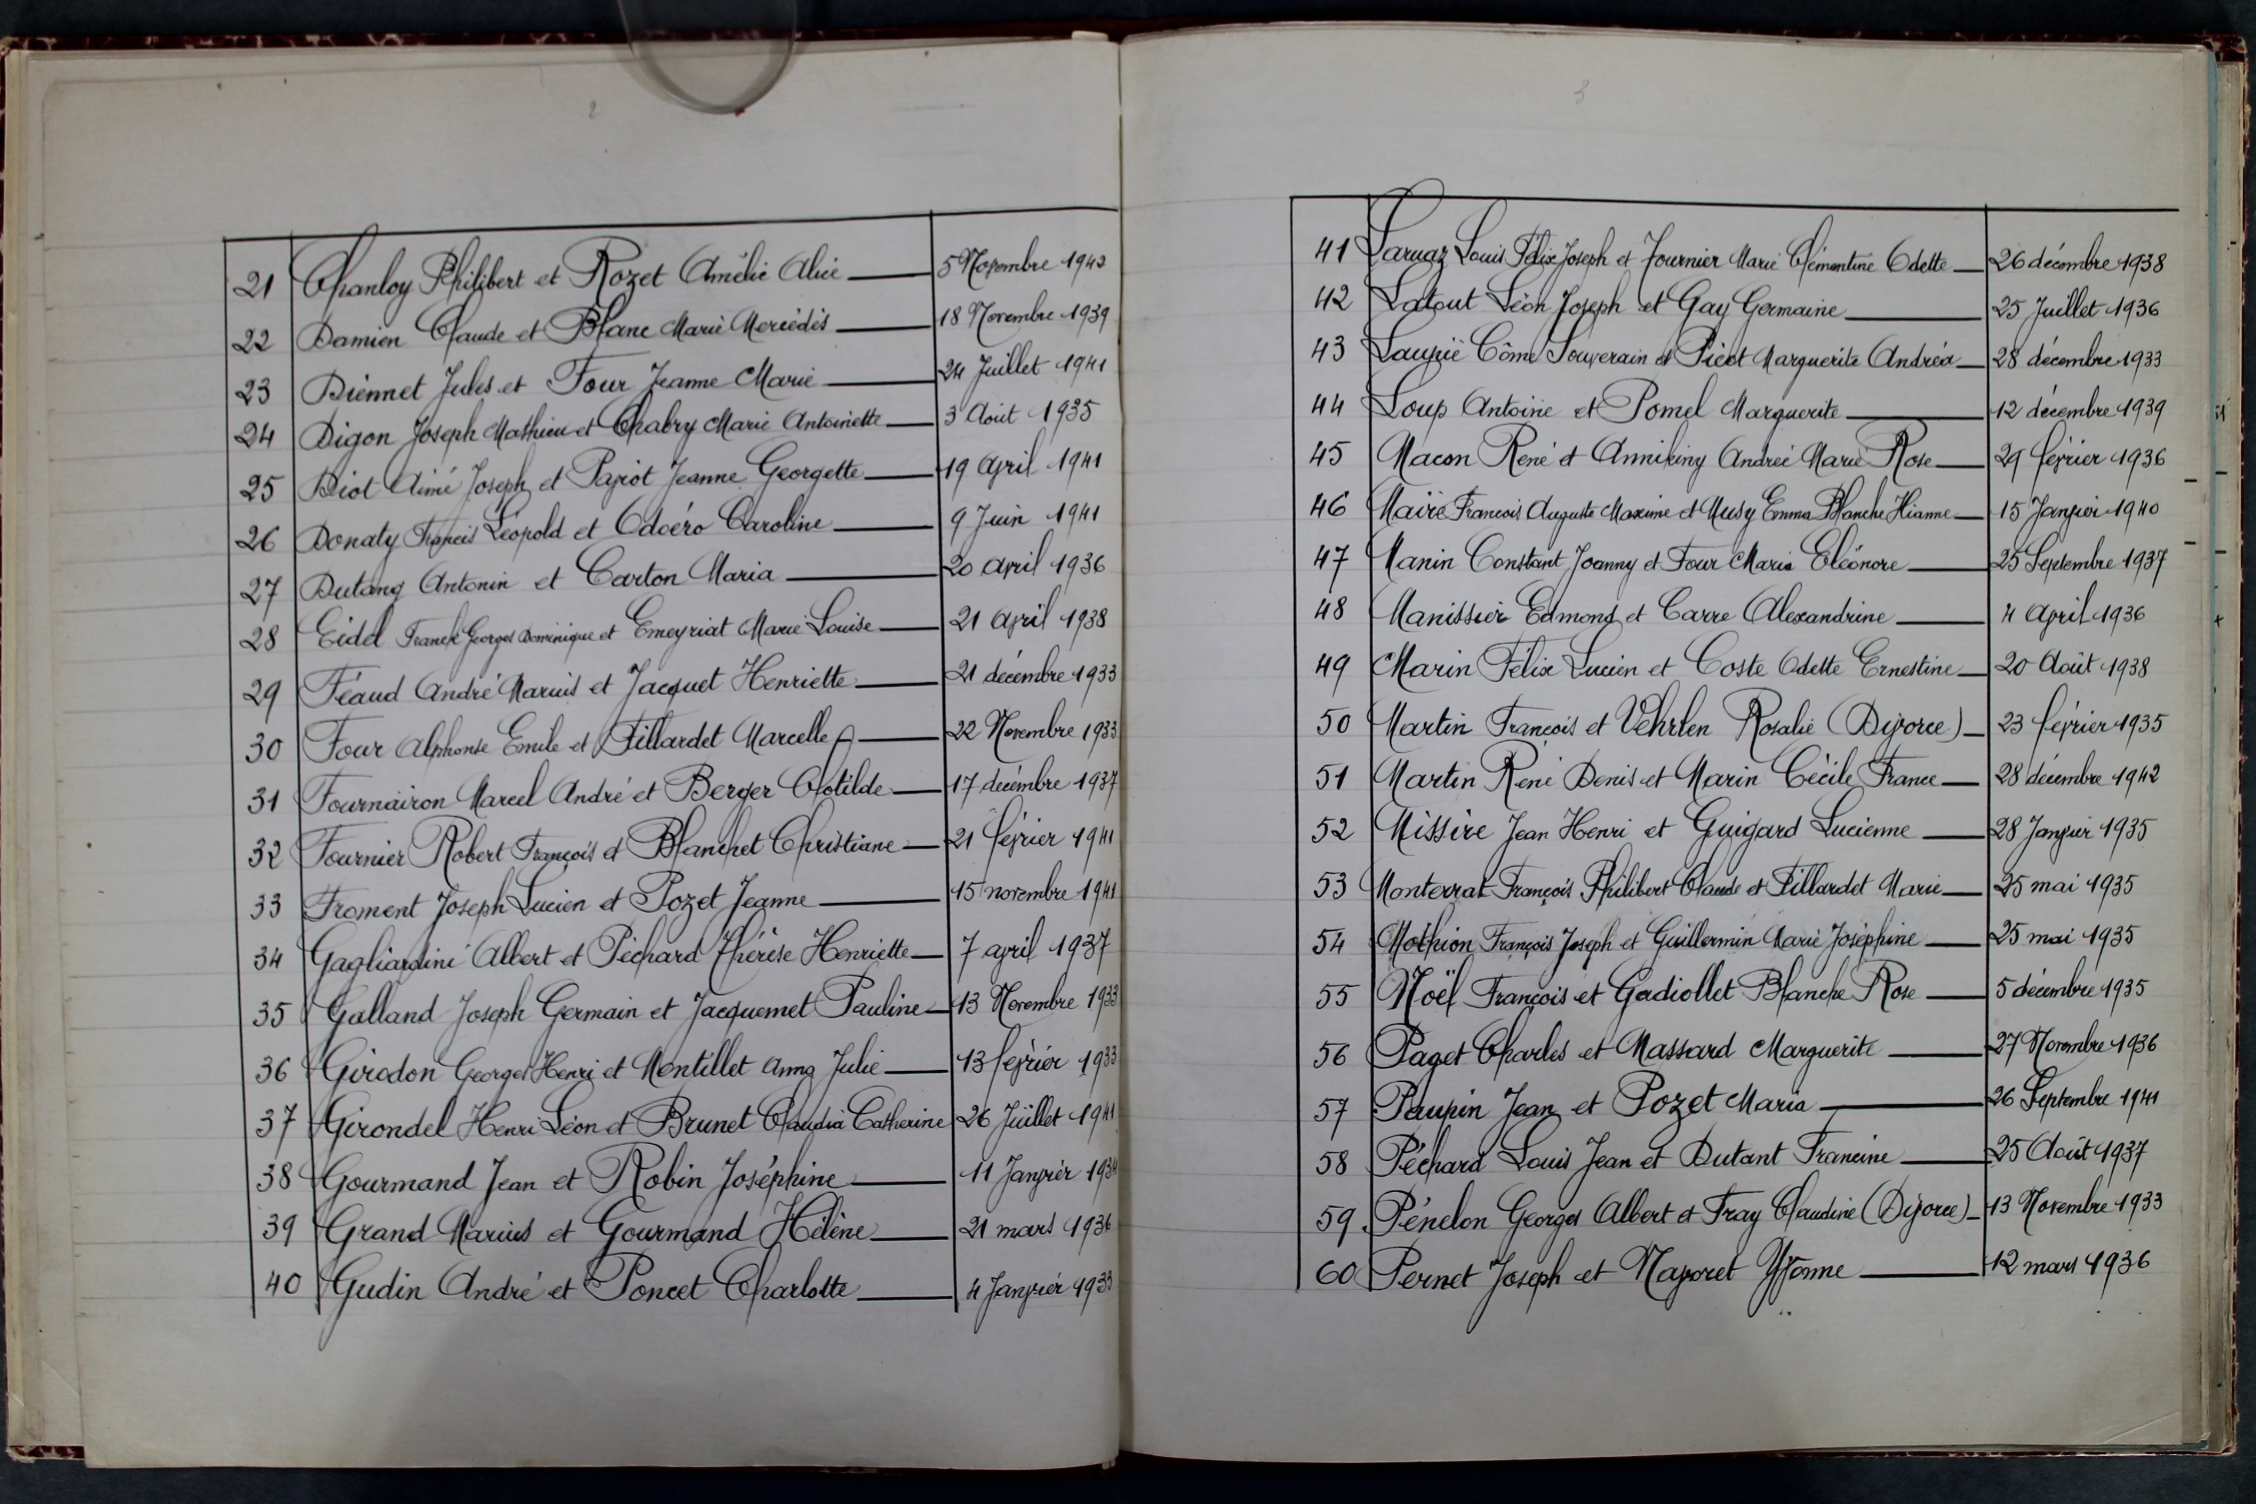 2
21 Chanloy Philibert et Rozet Amélie Alice 5 Novembre 1942
22 Damien Claude et Blanc Marie Mercédès 18 Novembre 1939
23 Diennet Jules et Four Jeanne Marie 24 Juillet 1941
24 Digon Joseph Mathieu et Chabry Marie Antoinette 3 Août 1935
25 Diot Aimé Joseph et Payiot Jeanne Georgette 19 April 1941
26 Donaty Francis Léopold et Odoéro Caroline 9 Juin 1941
27 Dutang Antonin et Carton Maria 20 april 1936
28 Eidel Franck Georges Dominique et Emeyriat Marie Louise 21 april 1938
29 Féaud André Marius et Jacquet Henriette 21 décembre 1933
30 Four Alphonse Emile et Fillardet Marcelle 22 Novembre 1933
31 Fournairon Marcel André et Berger Clotilde 17 décembre 1937
32 Fournier Robert François et Blanchet Christiane 21 février 1941
33 Froment Joseph Lucien et Pozet Jeanne 15 novembre 1941
34 Gagliardini Albert et Péchard Thérèse Henriette 7 april 1937
35 Galland Joseph Germain et Jacquemet Pauline 13 Novembre 1933
36 Girodon Georges Henri et Montillet Anna Julie 13 février 1933
37 Girondel Henri Léon et Brunet Claudia Catherine 26 Juillet 1941
38 Gourmand Jean et Robin Joséphine 11 Janvier 1934
39 Grand Marius et Gourmand Hélène 21 mars 1936
40 Gudin André et Poncet Charlotte 4 Janvier 1933
3
41 Laruaz Louis Félix Joseph et Fournier Marie Clémentine Odette 26 décembre 1938
42 Latout Léon Joseph et Gay Germaine 25 Juillet 1936
43 Laupie Côme Souverain et Picot Marguerite Andréa 28 décembre 1933
44 Loup Antoine et Pomel Marguerite 12 décembre 1939
45 Macon René et Annikiny Andrée Marie Rose 29 février 1936
46 Maire François Auguste Maxime et Musy Emma Blanche Hianne 15 Janvier 1940
47 Manin Constant Joanny et Four Maria Eléonore 25 Septembre 1937
48 Manissier Edmond et Carre Alexandrine 4 april 1936
49 Marin Félix Lucien et Coste Odette Ernestine 20 Août 1938
50 Martin François et Vehrlen Rosalie (Divorce) 23 février 1935
51 Martin René Denis et Marin Cécile France 28 décembre 1942
52 Missire Jean Henri et Guigard Lucienne 28 Janvier 1935
53 Monterrat François Philibert Claude et Fillardet Marie 25 mai 1935
54 Mothion François Joseph et Guillermin Marie Joséphine 25 mai 1935
55 Noël François et Gadiollet Blanche Rose 5 décembre 1935
56 Paget Charles et Massard Marguerite 27 Novembre 1936
57 Paupin Jean et Pozet Maria 26 Septembre 1941
58 Péchard Louis Jean et Dutant Francine 25 Août 1937
59 Pénelon Georges Albert et Fray Claudine (Divorce) 13 Novembre 1933
60 Pernet Joseph et Nayoret Yvonne 12 mars 1936